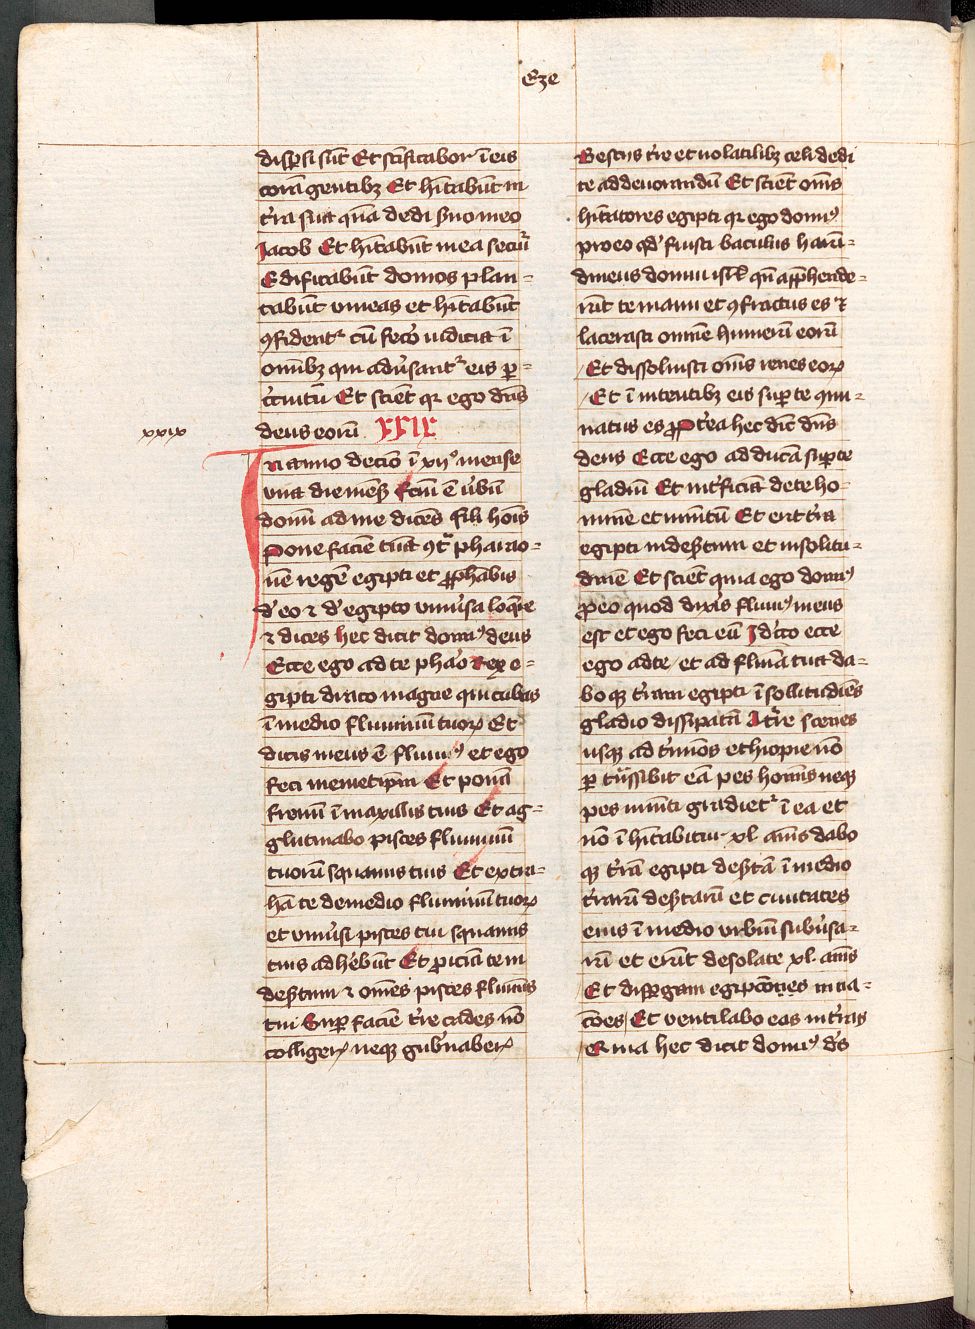 Eze
disp̱si sūt Et scīficabor ī eis
corā gentibꝫ Et hītabūt in
t̄ra sua quā dedi s̄uo meo
Jacob Et hītabūt in ea secur̄
Edificabūt domos plan-
tabūt vineas et hītabūt
ꝯfident᷑ cū fec̄o iudicia ī
om̄ibꝫ qui adūsant᷑ eis ꝑ
c̄cuitū Et scient̄ qꝛ ego dn̄s
deus eorū XXIX
xxix
In anno decīo ī xijº mense
vna die mens̄ fc̄m ē v̄bū
domī ad me dicēs fili hoīs
Pone faciē tuā ꝯt̄ pharao-
nē regē egipti et ꝓphabis
d̄ eo ⁊ d̄ egipto vniūsa loq̄re
⁊ dices hec dicit domīꝰ deus
Ecce ego ad te phāo Rex e-
gipti draco magne qui cubas
ī medio fluminū tuoꝝ Et
dicis meus ē fluuiꝰ et ego
feci memetip̄m Et ponā
frenū ī maxillis tuis Et ag-
glutinabo pisces fluminū
tuorū squamis tuis Et extra-
hā te de medio fluminū tuoꝝ
et vniūsi pisces tui squamis
tuis adhēbūt Et ꝓiciā te in
desertum ⁊ om̄es pisces fluminis
tui Suꝑ faciē t̄re cades nō
colligeꝝ neqꝫ gub̄nabeꝝ
Bestijs t̄re et volatilibꝫ celi dedi
te ad deuorandū Et scient̄ om̄s
hītatores egipti qꝛ ego domīꝰ
pro eo qd̄ fuisti baculus harū-
dineus domui isrl̄ qn̄ app̄hende-
rūt te manu et ꝯfractus es ⁊
lacerasti omnē humerū eorū
Et dissoluisti om̄s renes eoꝝ
Et ī nitentibꝫ eis suꝑ te ꝯmi-
natus es ꝓpt̄ea hec dic̄ dn̄s
deus Ecce ego adducā suꝑ te
gladiū Et int̄ficiā de te ho-
minē et iumt̄ū Et erit t̄ra
egipti in des̄tum et in solitu-
dinē Et scient̄ quia ego domīꝰ
ꝓ eo quod dix̄is fluuiꝰ meus
est et ego feci eū Jd̄cco ecce
ego ad te et ad flumīa tua da-
boqꝫ t̄ram egipti ī sollitudiēs
gladio dissipatā A t̄re scenes
usqꝫ ad t̄mīos ethiopie nō
ꝑtnssibit eā pes homīs neqꝫ
pes iumt̄i gradiet᷑ ī ea et
nō īhītabitur xl annis dabo
qꝫ t̄rā egipti des̄tā ī medio
t̄rarū des̄tarū et ciuitates
eius ī medio vrbiū subūsa-
rū et erūt desolate xl annis
Et disꝑgam egipcōes in na-
cōes Et ventilabo eas in t̄ras
Quia hec dicit domīꝰ d̄s